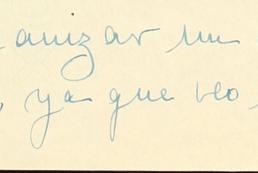 anizar un
, ya que veo